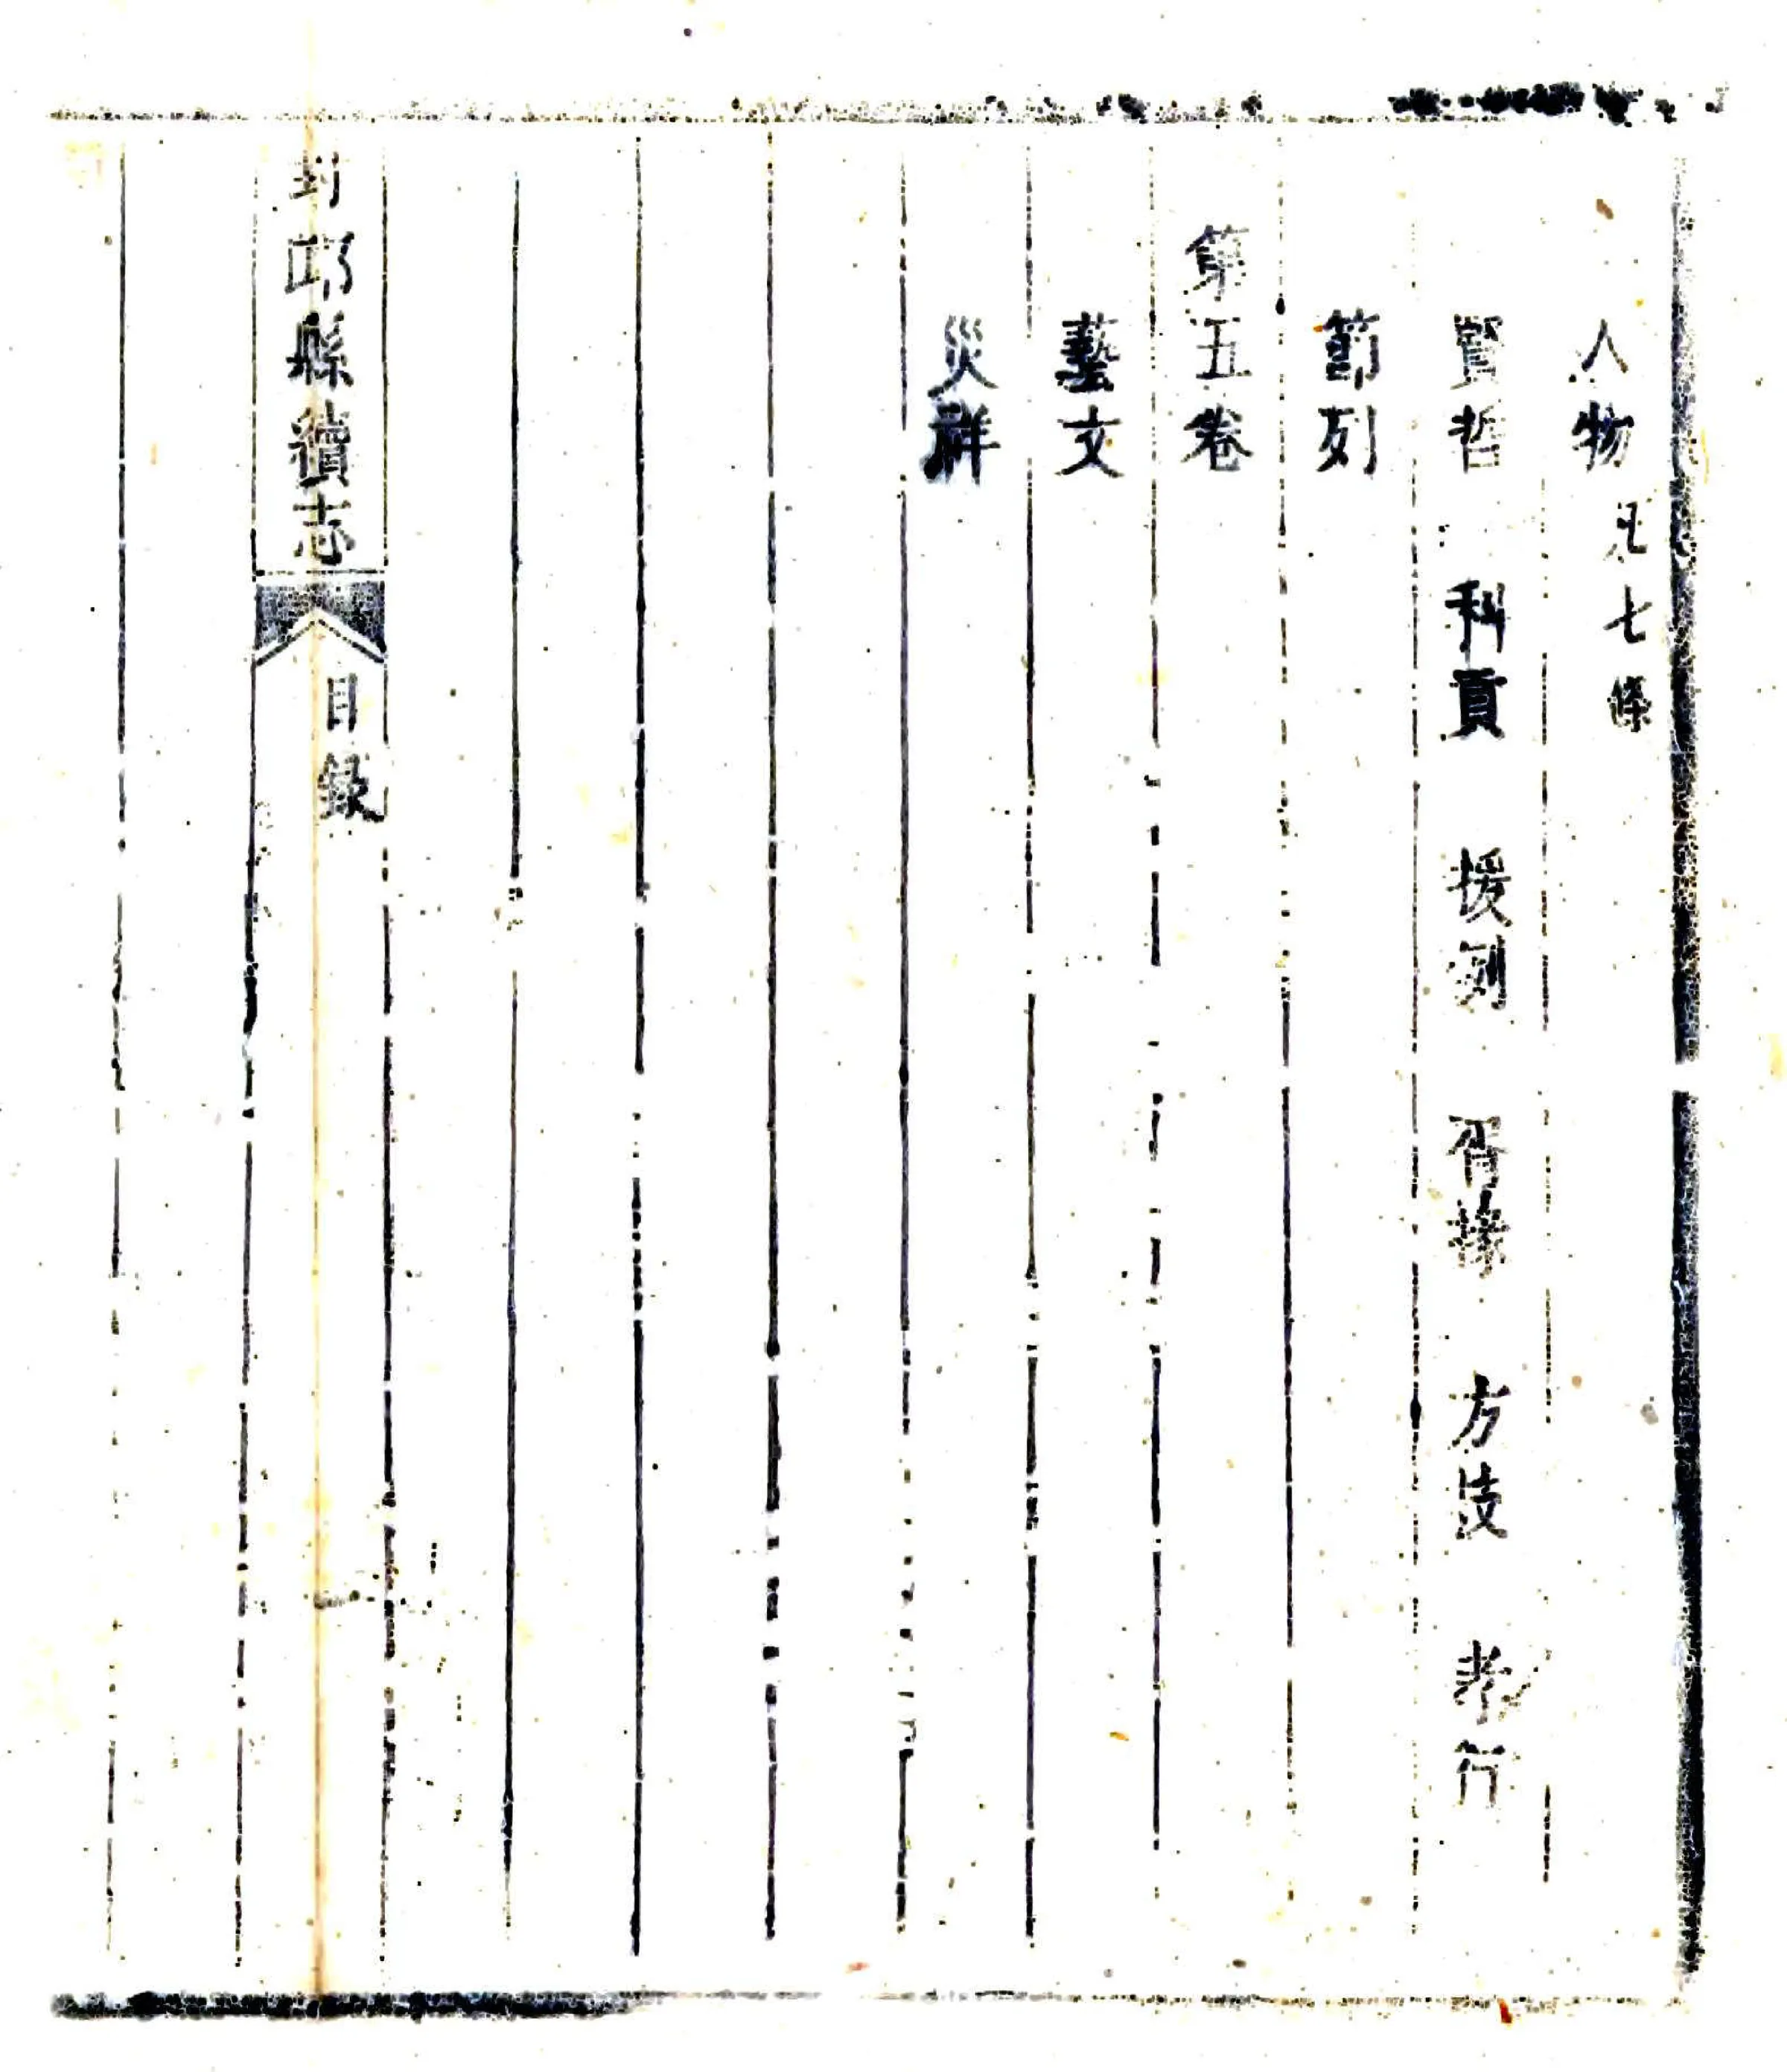 人物凡七條
賢哲 科貢 援列 胥掾 方技 孝行
節列
第五卷
藝文
災祥
封邱縣續志 目錄